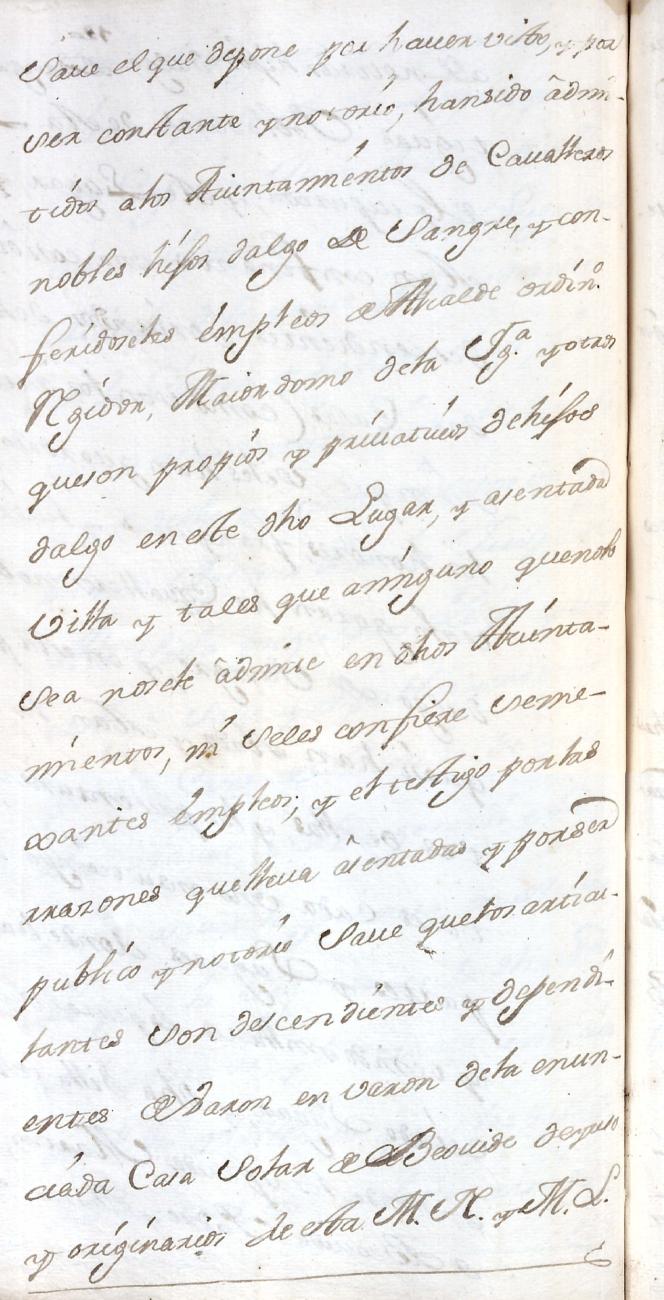 Save el que depone por haver visto, y por
ser constante y notorio, han sido admi-
tidos a los Aiuntamientos de Cavalleros
nobles hijos dalgo de Sangre, y con-
feridoseles empleos de Alcalde ordin.º
Rexidor, Maiordomo de la Ygª y otros
que son propios y privativos de hijos
dalgo en este dho Lugar, y asentada
villa y tales que aninguno que no lo
sea no se le admite en dhos Aiunta-
mientos, ni se les confiere seme-
xantes empleos; y el testigo por las
rrazones que lleva asentadas y por ser
publico y notorio Save que los articu-
lantes son descendientes y dependi-
entes de Baron en varon de la enun-
ciada Casa Solar de Beovide de yuso
y originarios de esta M. N. y M. L.